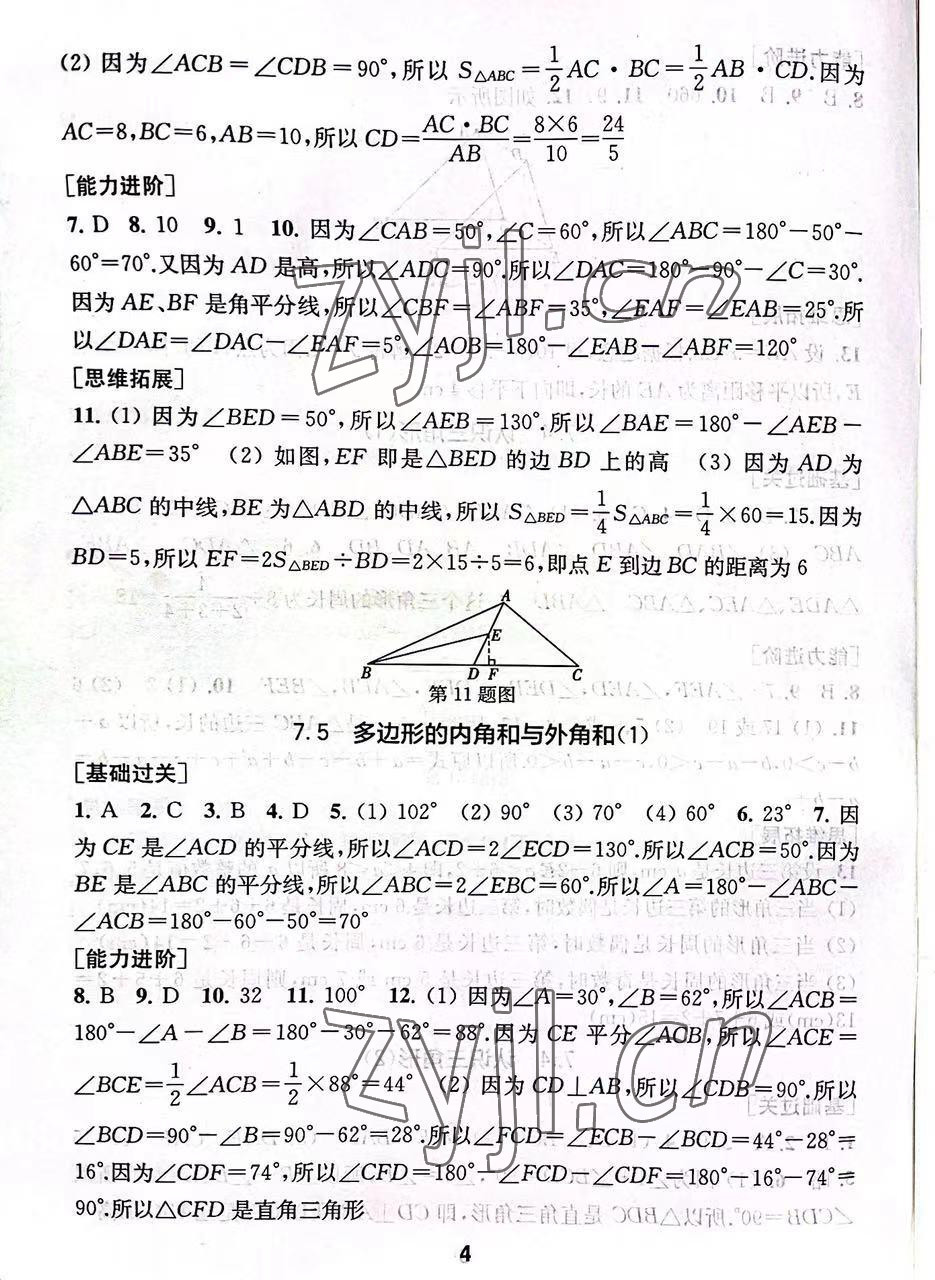 (2) 因为∠ACB=∠CDB=90°,所以 S△ABC=1/2 AC·BC=1/2 AB·CD.因为
AC=8,BC=6,AB=10,所以 CD=AC·BC/AB=8×6/10=24/5
[能力进阶]
7. D 8. 10 9. 1 10. 因为∠CAB=50°,∠C=60°,所以∠ABC=180°-50°-
60°=70°.又因为 AD 是高,所以∠ADC=90°.所以∠DAC=180°-90°-∠C=30°.
因为 AE、BF 是角平分线,所以∠CBF=∠ABF=35°,∠EAF=∠EAB=25°.所
以∠DAE=∠DAC-∠EAF=5°,∠AOB=180°-∠EAB-∠ABF=120°
[思维拓展]
11. (1) 因为∠BED=50°,所以∠AEB=130°.所以∠BAE=180°-∠AEB-
∠ABE=35° (2) 如图,EF 即是△BED 的边 BD 上的高 (3) 因为 AD 为
△ABC 的中线,BE 为△ABD 的中线,所以 S△BED=1/4 S△ABC=1/4×60=15.因为
BD=5,所以 EF=2S△BED÷BD=2×15÷5=6,即点 E 到边 BC 的距离为 6
A
E
B D F C
第 11 题图
7.5 多边形的内角和与外角和(1)
[基础过关]
1. A 2. C 3. B 4. D 5. (1) 102° (2) 90° (3) 70° (4) 60° 6. 23° 7. 因
为 CE 是∠ACD 的平分线,所以∠ACD=2∠ECD=130°.所以∠ACB=50°.因为
BE 是∠ABC 的平分线,所以∠ABC=2∠EBC=60°.所以∠A=180°-∠ABC-
∠ACB=180°-60°-50°=70°
[能力进阶]
8. B 9. D 10. 32 11. 100° 12. (1) 因为∠A=30°,∠B=62°,所以∠ACB=
180°-∠A-∠B=180°-30°-62°=88°.因为 CE 平分∠ACB,所以∠ACE=
∠BCE=1/2∠ACB=1/2×88°=44° (2) 因为 CD⊥AB,所以∠CDB=90°.所以
∠BCD=90°-∠B=90°-62°=28°.所以∠FCD=∠ECB-∠BCD=44°-28°=
16°.因为∠CDF=74°,所以∠CFD=180°-∠FCD-∠CDF=180°-16°-74°=
90°.所以△CFD 是直角三角形
4
zyjl.cn
zyjl.cn